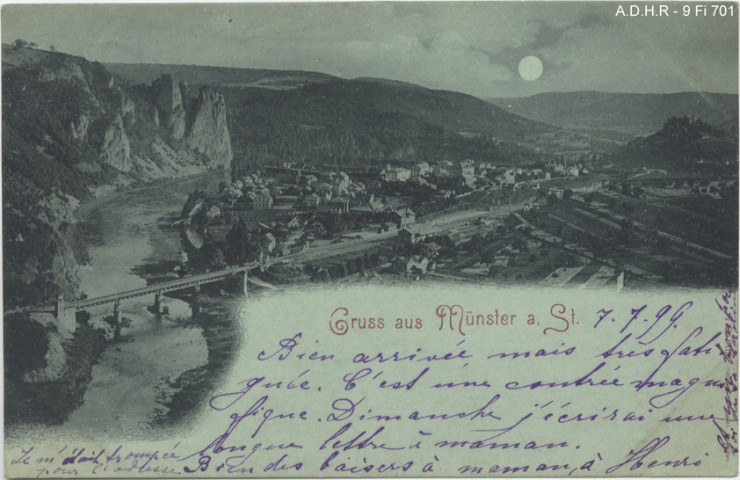 A.D.H.R - 9 Fi 701
Gruss aus Münster a. St. 7.7.99.
Bien arrivée mais très fati
guée. C'est une contrée magni
fique. Dimanche j'écrirai une
longue lettre à maman.
Bien des baisers à maman, à Henri
Je m'étais trompée
pour l'adresse.